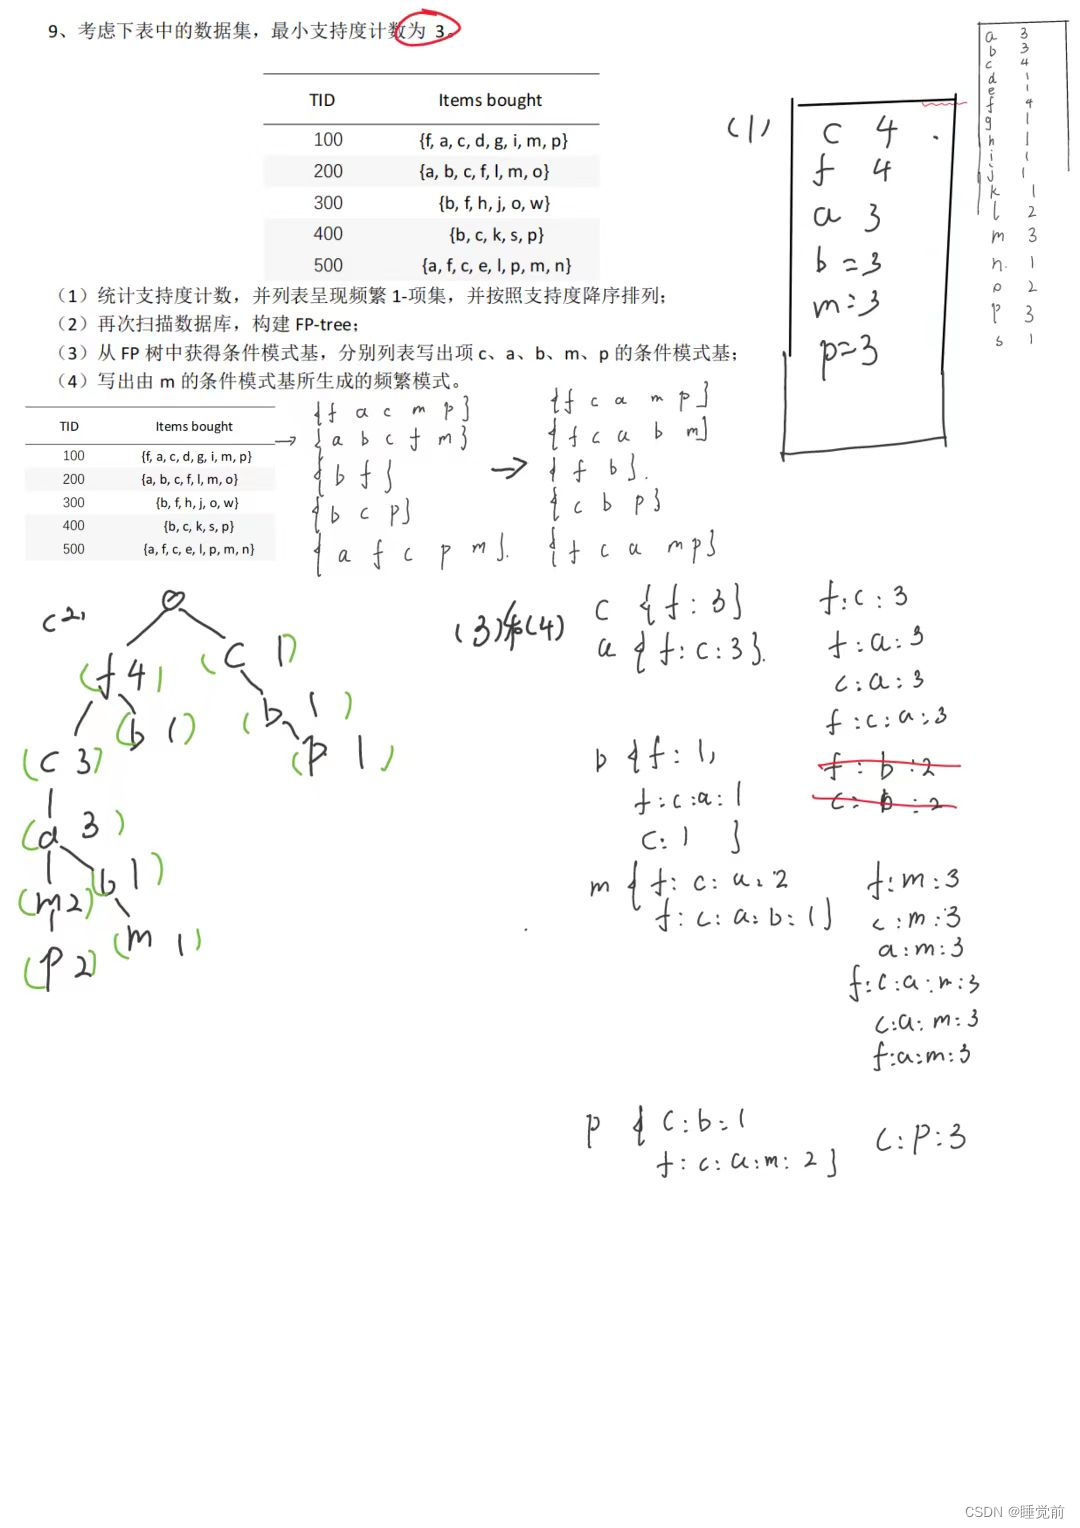 9、考虑下表中的数据集，最小支持度计数为 3。
TID Items bought
100 {f, a, c, d, g, i, m, p}
200 {a, b, c, f, l, m, o}
300 {b, f, h, j, o, w}
400 {b, c, k, s, p}
500 {a, f, c, e, l, p, m, n}
(1)
c 4
f 4
a 3
b = 3
m = 3
p = 3
a 3
b 3
c 4
d 1
e 1
f 4
g 1
h 1
i 1
j 1
k 1
l 2
m 3
n. 1
o 2
p 3
s 1
（1）统计支持度计数，并列表呈现频繁 1-项集，并按照支持度降序排列；
（2）再次扫描数据库，构建 FP-tree；
（3）从 FP 树中获得条件模式基，分别列表写出项 c、a、b、m、p 的条件模式基；
（4）写出由 m 的条件模式基所生成的频繁模式。
TID Items bought
100 {f, a, c, d, g, i, m, p}
200 {a, b, c, f, l, m, o}
300 {b, f, h, j, o, w}
400 {b, c, k, s, p}
500 {a, f, c, e, l, p, m, n}
→
{f a c m p}
{a b c f m}
{b f}
{b c p}
{a f c p m}.
→
{f c a m p}
{f c a b m}
{f b}.
{c b p}
{f c a m p}
(2)
(f 4) (c 1)
(b 1) (b 1)
(c 3) (p 1)
(a 3)
(m 2) (b 1)
(p 2) (m 1)
(3)和(4)
c {f : 3} f:c:3
a {f:c:3}. f:a:3
c:a:3
f:c:a:3
b {f: 1, f:b:2
f:c:a:1 c:b:2
c:1 }
m {f:c:a:2 f:m:3
f:c:a:b:1} c:m:3
a:m:3
f:c:a:m:3
c:a:m:3
f:a:m:3
p {c:b=1 c:p:3
f:c:a:m:2}
CSDN @睡觉前